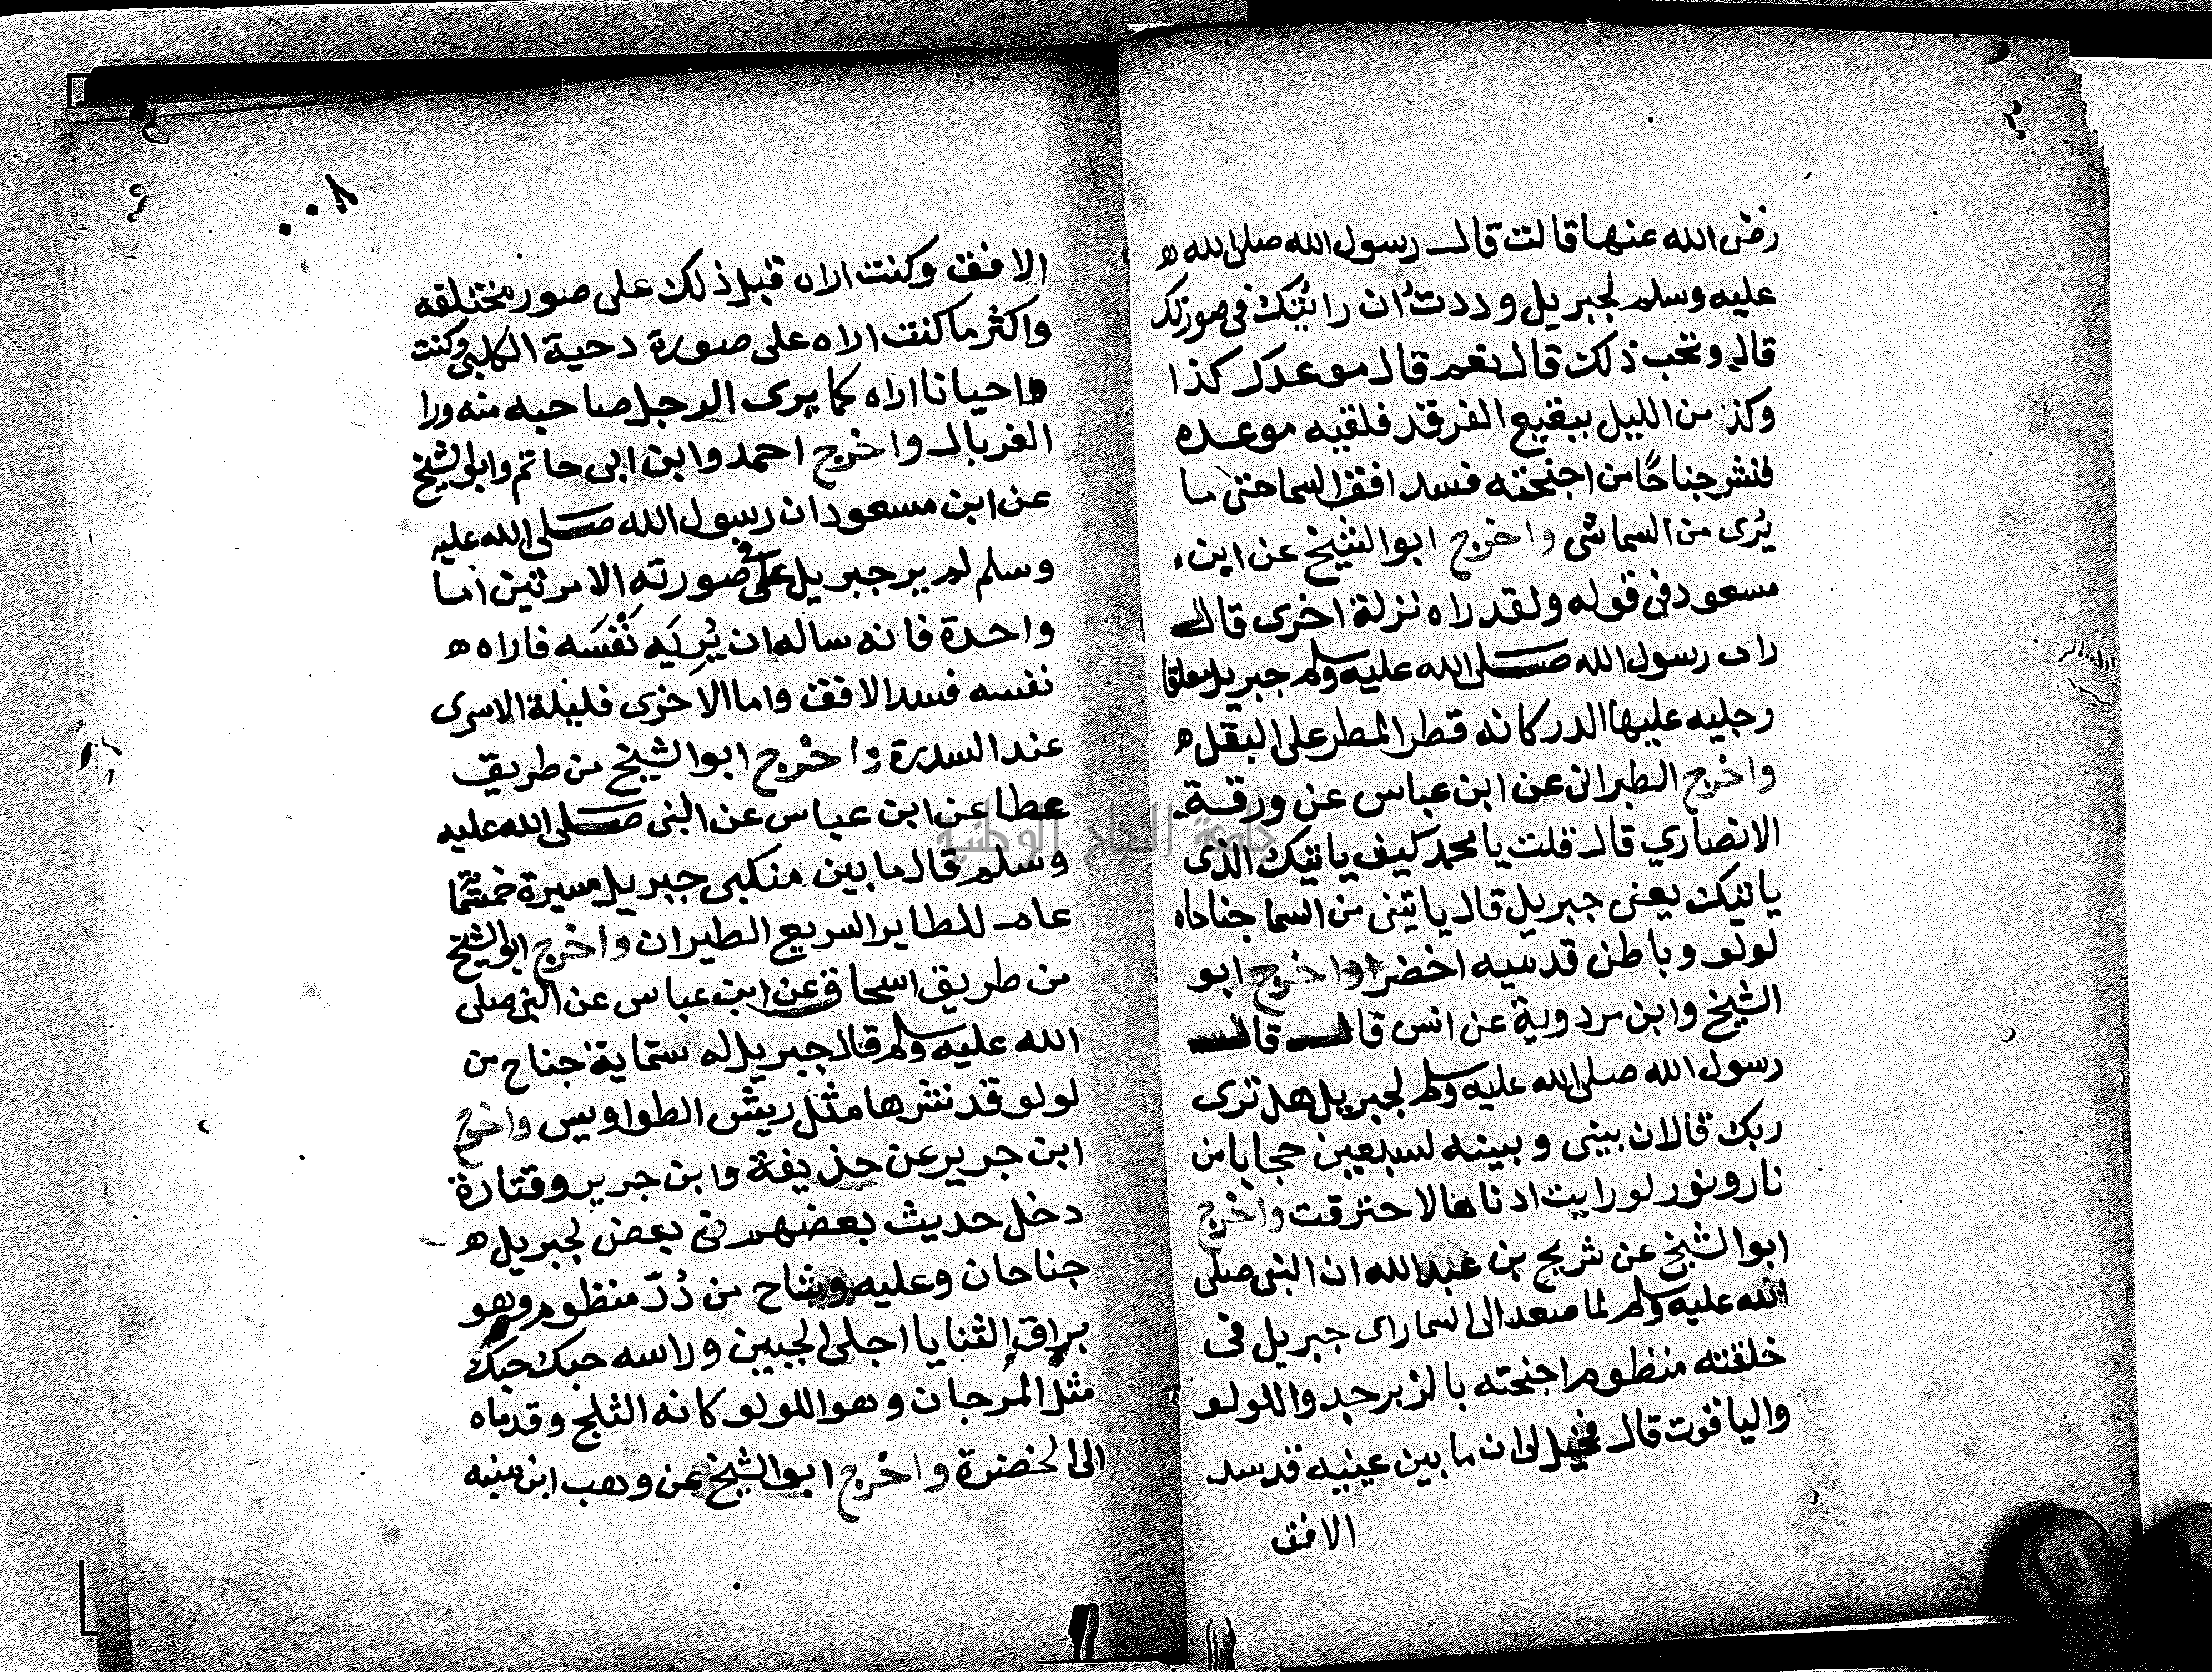 رضى الله عنها قالت قال رسول الله صلى الله ه
عليه وسلم لجبريل وددت ان رائيتك فى صورتك
قال وتحب ذلك قال نعم قال موعدك كذا
وكذا من الليل ببقيع الغرقد فلقيه موعده
فنشر جناحًا من اجنحته فسد افق السما حتى ما
يُرى من السما شى واخرج ابوالشيخ عن ابن
مسعود فى قوله ولقد راه نزلة اخرى قال
راى رسول الله صلى الله عليه وسلم جبريل معلقا
رجليه عليها الدر كانه قطر المطر على البقل ه
واخرج الطبرانى عن ابن عباس عن ورقة
الانصاري قال قلت يا محمد كيف ياتيك الذى
ياتيك يعنى جبريل قال ياتينى من السما جناحاه
لولو وباطن قدميه اخضر واخرج ابو
الشيخ وابن مردوية عن انس قال قال
رسول الله صلى الله عليه وسلم لجبريل هل ترى
ربك قال ان بينى وبينه لسبعين حجابا من
نار ونور لو رايت ادناها لاحترقت واخرج
ابوالشيخ عن شريح بن عبدالله ان النبى صلى
الله عليه وسلم لما صعد الى السما راى جبريل فى
خلقته منظوم اجنحته بالزبرجد واللولو
والياقوت قال فخيل لى ان ما بين عينيه قد سد
الافق
٨٠٠
الافق وكنت اراه قبل ذلك على صور مختلفه
واكثر ما كنت اراه على صورة دحية الكلبى وكنت
احيانا اراه كما يرى الرجل صاحبه من ورا
الغربال واخرج احمد وابن ابى حاتم وابوالشيخ
عن ابن مسعود ان رسول الله صلى الله عليه
وسلم لم ير جبريل فى صورته الا مرتين اما
واحدة فانه ساله ان يُريَه نَفْسَه فاراه ه
نفسه فسد الافق واما الاخرى فليلة الاسرى
عند السدرة واخرج ابوالشيخ من طريق
عطا عن ابن عباس عن النبى صلى الله عليه
وسلم قال ما بين منكبى جبريل مسيرة خمسماية
عام للطاير السريع الطيران واخرج ابوالشيخ
من طريق اسحاق عن ابن عباس عن النبى صلى
الله عليه وسلم قال جبريل له ستماية جناح من
لولو قد نشرها مثل ريش الطواويس واخرج
ابن جرير عن حذيفة وابن جرير وقتادة
دخل حديث بعضهم فى بعض لجبريل ه
جناحان وعليه وشاح من دُرّ منظوم وهو
براق الثنايا اجلى الجبين وراسه حبك حبك
مثل المرجان وهو اللولو كانه الثلج وقدماه
الى الخضرة واخرج ابوالشيخ عن وهب ابن منبه
جامعة النجاح الوطنية